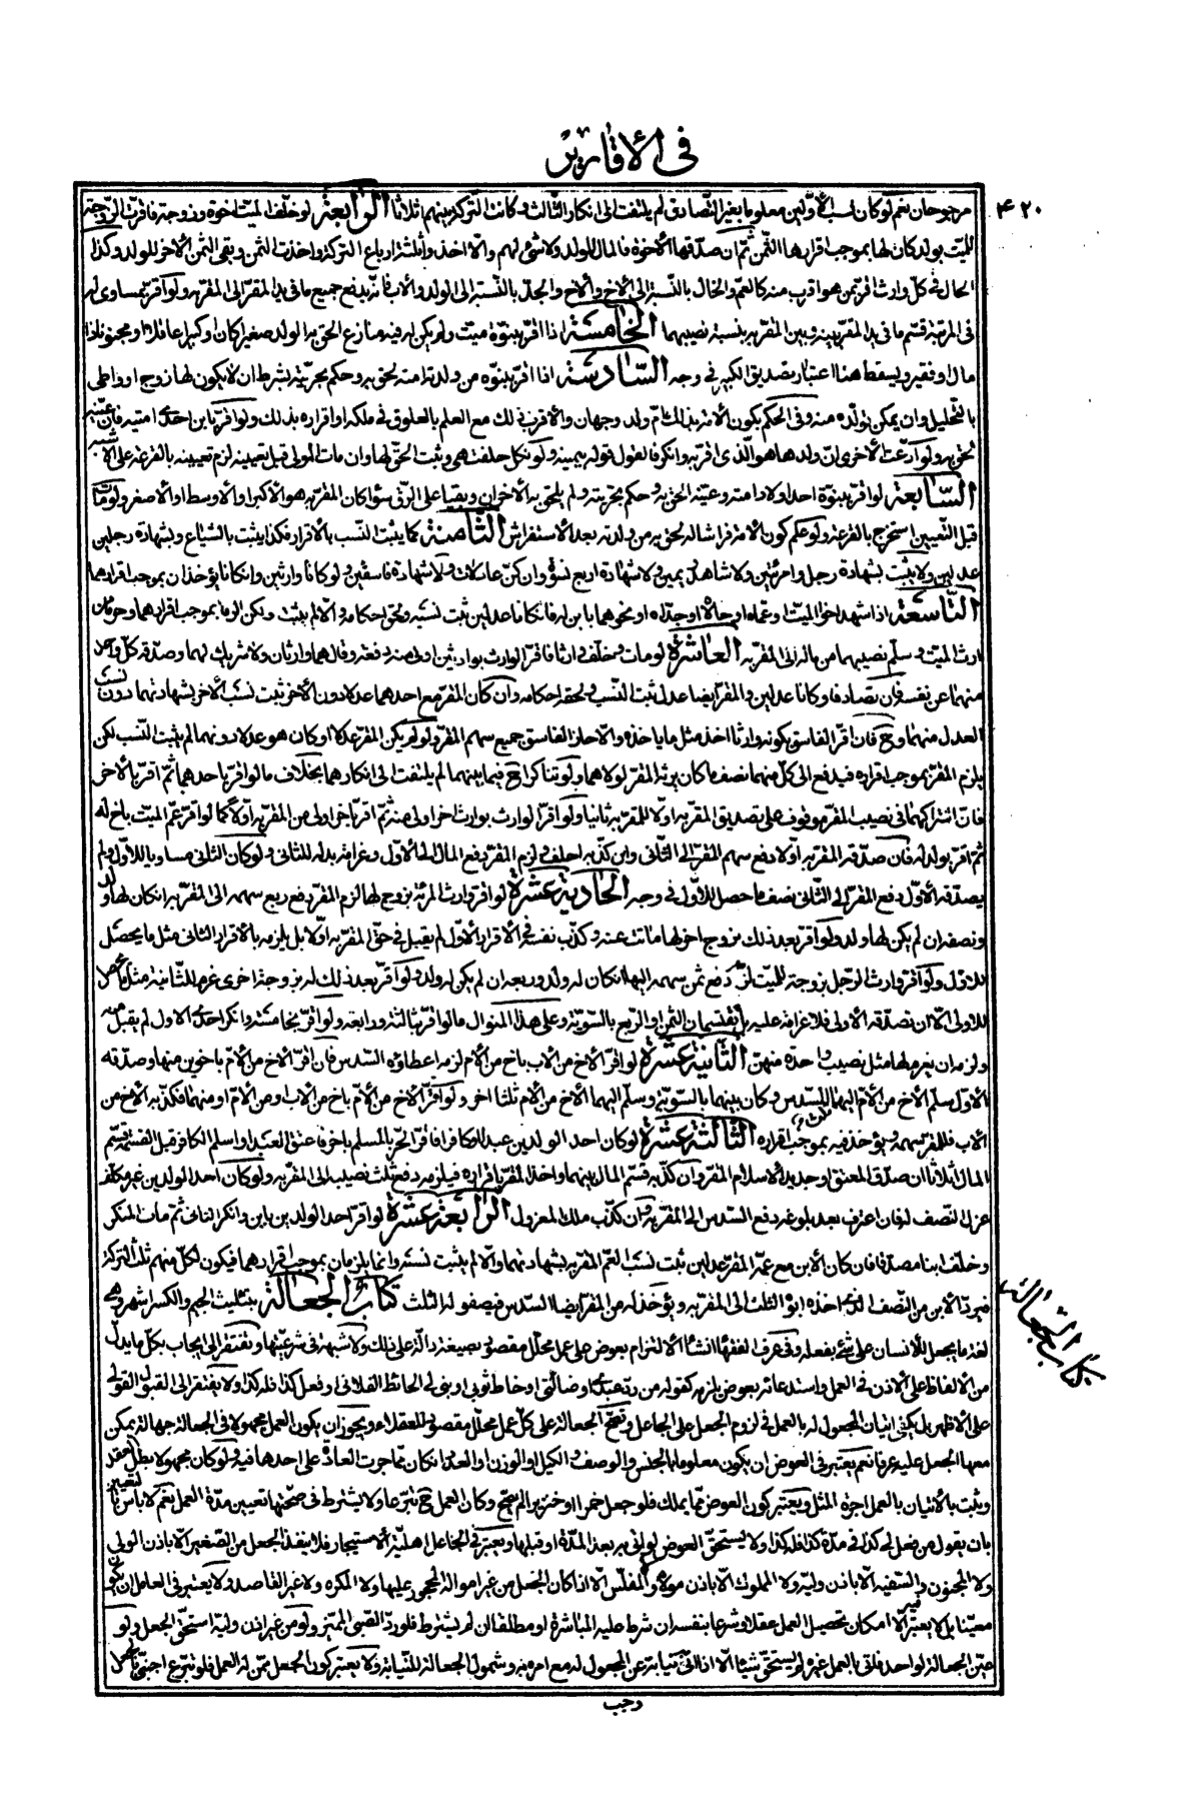 في الأقارير
۴۲۰
مرجوحان نعم لو كان نسب الأولين معلوما بغير التصادق لم يلتفت إلى انكار الثالث وكانت التركة بينهم اثلاثا الرابعة لو خلف الميت اخوة وزوجة فاقرت الزوجة
للميت بولد كان لها بموجب اقرارها الثمن ثم ان صدقها الأخوة فالمال للولد ولا شيء لهم والا اخذوا ثلثة ارباع التركة واخذت الثمن وبقى الثمن الأخر للولد وكذا
الحال في كل وارث اقر بمن هو اقرب منه كالعم والخال بالنسبة إلى الأخ والأخ والجد بالنسبة إلى الولد والأب فانه يدفع جميع ما في يد المقر إلى المقر به ولو اقر بمساوى له
في المرتبة قسم ما في يد المقر بينه وبين المقر به بنسبة نصيبهما الخامسة اذا اقر ببنوة ميت ولم يكن له فيه منازع الحق به الولد صغيرا كان او كبيرا عاقلا او مجنونا ذا
مال او فقير ويسقط هنا اعتبار تصديق الكبير في وجه السادسة اذا اقر ببنوة من ولدته امته لحق به وحكم بحريته بشرط ان لا يكون لها زوج او واطى
بالتحليل وان يمكن تولده منه وفي الحكم بكون الأمة بذلك ام ولد وجهان والأقرب ذلك مع العلم بالعلوق في ملكه او اقراره بذلك ولو اقر بابن احدى امتيه فان عينه
لحق به ولو ادعت الأخرى ان ولدها هو الذى اقر به وانكر فالقول قوله بيمينه ولو نكل حلفت هي وثبت الحق لها وان مات المولى قبل تعيينه لزم تعيينه بالقرعة على الأشبه
السابعة لو اقر ببنوة احد اولاد امته وعينه الحق به وحكم بحريته ولم يلحق به الأخوان وبقيا على الرق سواء كان المقر به هو الأكبر او الأوسط او الأصغر ولو مات
قبل التعيين استخرج بالقرعة ولو علم كون الأمة فراشا له لحق به من ولدته بعد الأستفراش الثامنة كما يثبت النسب بالأقرار فكذا يثبت بالشياع وبشهادة رجلين
عدلين ولا يثبت بشهادة رجل وامرئتين ولا شاهد ويمين ولا شهادة اربع نسوة وان كن عادلات ولا شهادة فاسقين ولو كانا وارثين وان كانا يؤخذان بموجب اقرارهما
التاسعة اذا شهد اخو الميت او عماه او خالاه او جداه او نحوهما بابن له فان كانا عدلين ثبت نسبه ولحق احكامه والا لم يثبت ولكن الزما بموجب اقرارهما وحرمان
ارث الميت وسلم نصيبهما من ماله الى المقر به العاشرة لو مات وخلف وارثا فاقر الوارث بوارثين اولى منه دفعة وقال هما وارثان ولا شريك لهما وصدقه كل واحد
منهما عن نفسه فان تصادقا وكانا عدلين والمقر ايضا عدل ثبت النسب ولحقه احكامه وان كان المقر مع احدهما عدلا دون الأخر ثبت نسب الأخر بشهادتهما دون نسب
العدل منهما وح فان اقر الفاسق بكونه وارثا اخذ مثل ما ياخذه والا اخذ الفاسق جميع سهم المقر ولو لم يكن المقر عدلا او كان هو عدلا دونهما لم يثبت النسب لكن
يلزم المقر بموجب اقراره فيدفع الى كل منهما نصف ما كان يرثه المقر لولاهما ولو تناكرا ح فيما بينهما لم يلتفت الى انكارهما بخلاف ما لو اقر باحدهما ثم اقر بالأخر
فان اشتراكهما في نصيب المقر موقوف على تصديق المقر به اولا للمقر به ثانيا ولو اقر الوارث بوارث اخر اولى منه ثم اقر باخر اولى من المقر به اولا كما لو اقر عم الميت باخ له
ثم اقر بولد له فان صدقه المقر به اولا دفع سهم المقر الى الثاني وان كذبه احلف ولزم المقر دفع المال الى الأول وغرامة بدله للثانى ولو كان الثانى مساويا للأول ولم
يصدقه الأول دفع المقر الى الثانى نصف ما حصل للأول في وجه الحادية عشرة لو اقر وارث المرئة بزوج لها لزم المقر دفع ربع سهمه الى المقر به ان كان لها ولد
ونصفه ان لم يكن لها ولد ولو اقر بعد ذلك بزوج اخر لها ماتت عنه وكذب نفسه في الأقرار الأول لم يقبل في حق المقر به اولا بل يلزمه بالأقرار الثانى مثل ما يحصل
للأول ولو اقر وارث الرجل بزوجة للميت لزم دفع ثمن سهمه اليها ان كان له ولد وربعه ان لم يكن له ولد ولو اقر بعد ذلك له بزوجة اخرى غرم للثانية مثل ما حصل
للأولى الا ان تصدقه الأولى فلا غرامة عليه بل يقتسمان الثمن او الربع بالسوية وعلى هذا المنوال ما لو اقر بثالثة ورابعة ولو اقر بخامسة وانكر احدى الاول لم يقبل منه
ولزمه ان يغرم لها مثل نصيب واحدة منهن الثانية عشرة لو اقر الأخ من الاب باخ من الأم لزمه اعطاؤه السدس فان اقر الأخ من الأم باخوين منها وصدقه
الأول سلم الأخ من الأم اليهما ثلثى السدس وكان بينهما بالسوية وسلم اليهما الأخ من الأم ثلثا اخر ولو اقر الأخ من الأم باخ من الأب ومن الأم او منهما فكذبه الأخ من
الأب فللمقر سهمه ويؤخذ فيه بموجب اقراره الثالثة عشرة لو كان احد الولدين عبدا او كافرا فاقر الحر المسلم باخر فاعتق العبد او اسلم الكافر قبل القسمة قسم
المال ثلاثا ان صدق المعتق او جديد الأسلام المقر وان كذبه قسم المال بينهما واخذ المقر باقراره فيلزمه دفع ثلث نصيبه الى المقر به ولو كان احد الولدين غير مكلف
عزل النصف له فان اعترف بعد بلوغه دفع السدس الى المقر به وان كذب ملك المعزول الرابعة عشرة لو اقر احد الولدين بابن وانكر الثانى ثم مات المنكر
وخلف ابنا مصدقا فان كان الأبن مع عمه المقر عدلين ثبت نسب العم المقر به بشهادتهما والا لم يثبت نسبه وانما يلزمان بموجب اقرارهما فيكون لكل منهم ثلث التركة
فيرد الأبن من النصف الذى اخذه ابوه الثلث الى المقر به ويؤخذ له من المقر ايضا السدس فيصفو له الثلث كتاب الجعالة بتثليث الجيم والكسر اشهر وهى
لغة ما يجعل للأنسان على شيء يفعله وفي عرف الفقهاء انشاء الألتزام بعوض على عمل محلل مقصود بصيغة دالة على ذلك ولا شبهة في شرعيتها وتفتقر الى ايجاب بكل ما يدل
من الألفاظ على الأذن في العمل واستدعائه بعوض يلزمه كقوله من رد عبدى او ضالتى او خاط ثوبى او بنى لي الحائط الفلانى او فعل كذا فله كذا ولا يفتقر الى القبول القولى
على الأظهر بل يكفى اتيان المجعول له بالعمل في لزوم الجعل على الجاعل وتصح الجعالة على كل عمل محلل مقصود للعقلاء ويجوز ان يكون العمل مجهولا في الجعالة جهالة يمكن
معها الجعل عليه عرفا نعم يعتبر في العوض ان يكون معلوما بالجنس والوصف والكيل او الوزن او العد ان كان مما جرت العادة على احدها فيه ولو كان مجهولا بطل العقد
ويثبت بالأتيان بالعمل اجرة المثل ويعتبر كون العوض مما يملك فلو جعل خمرا او خنزيرا لم يصح وكان العمل ح تبرعا ولا يشترط في صحتها تعيين مدة العمل نعم لا باس بالتعيين
بان يقول من فعل لى كذا في مدة كذا فله كذا ولا يستحق العوض لو اتى به بعد المدة او قبلها ويعتبر في الجاعل اهلية الأستيجار فلا ينفذ الجعل من الصغير الا باذن الولى
ولا المجنون والسفيه الا باذن وليه ولا المملوك الا باذن مولاه والمفلس الا اذا كان الجعل من غير امواله المحجور عليها ولا المكره ولا غير القاصد ولا يعتبر في العامل ان يكون
معينا بل لا يعتبر فيه الا امكان تحصيل العمل عقلا وشرعا بنفسه ان شرط عليه المباشرة او مطلقا ان لم يشترط فلو رد الصبى المميز ولو من غير اذن وليه استحق الجعل ولو
عين الجعالة لواحد فاتى بالعمل غيره لم يستحق شيئا الا اذا اتى نيابة عن المجعول له مع امره به وشمول الجعالة للنيابة ولا يعتبر كون الجعل ممن له العمل فلو تبرع اجنبى بالجعل
وجب
كتاب الجعالة